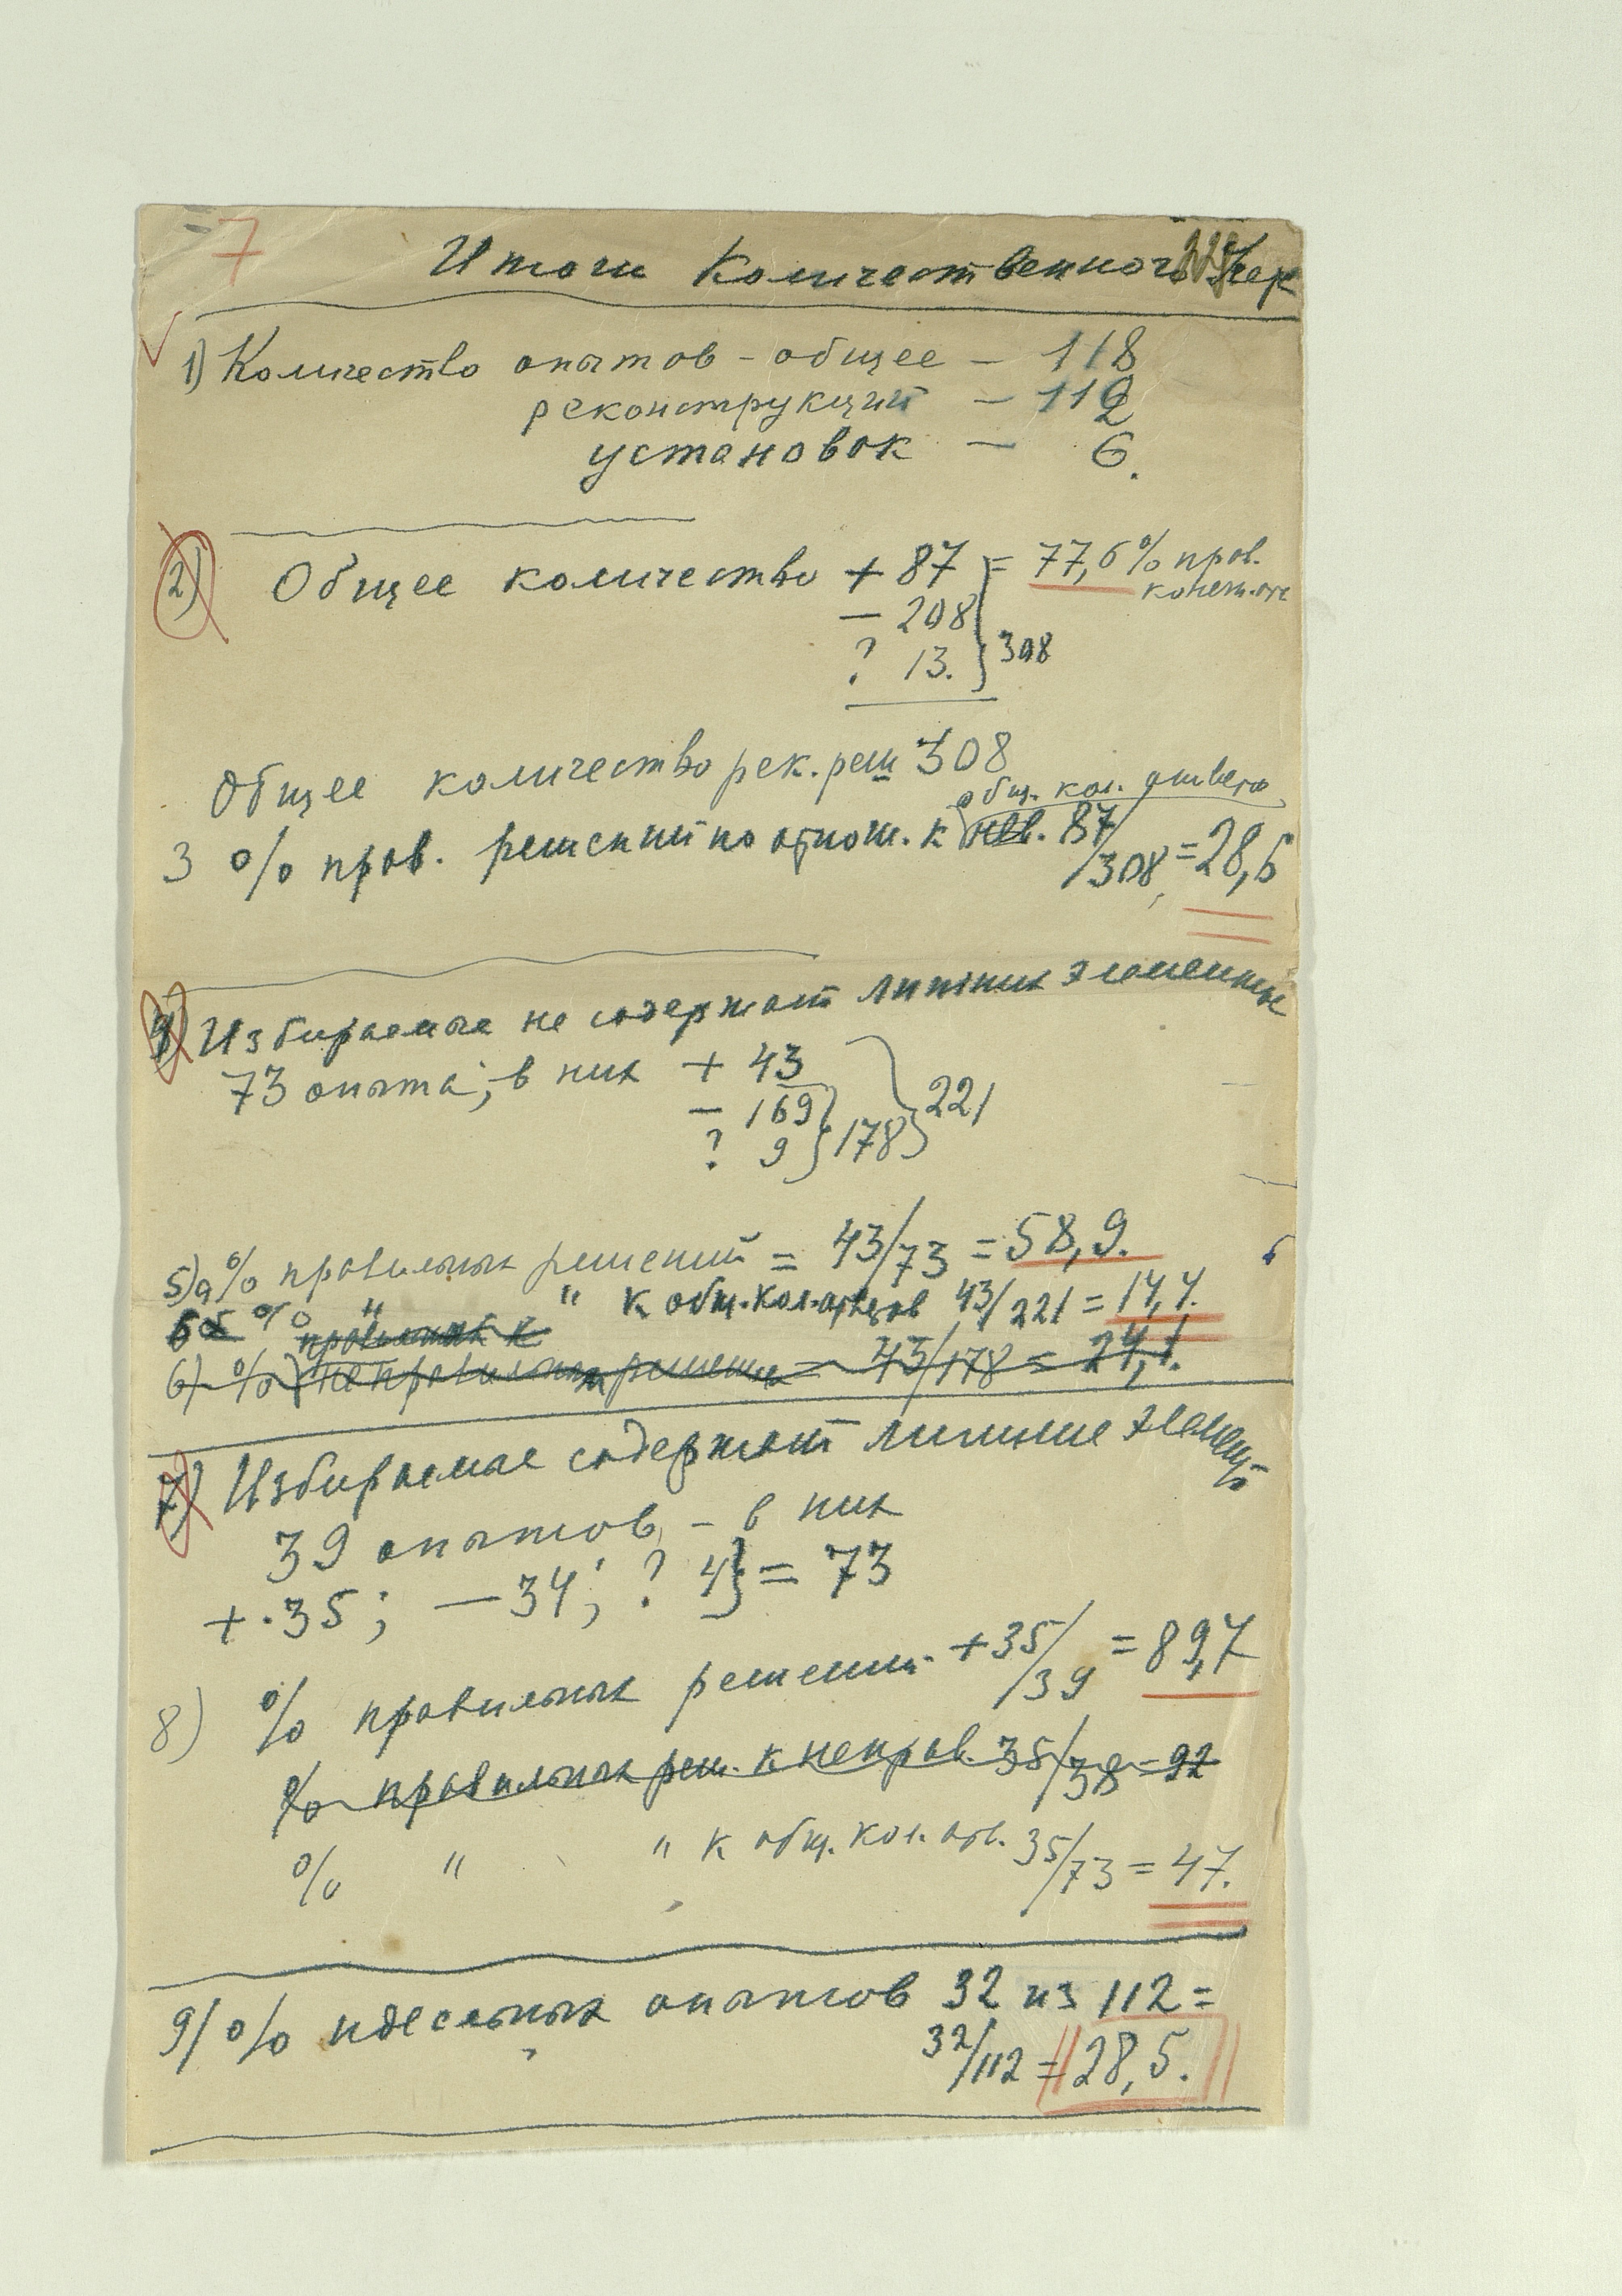 7
Итоги Количественного
1) Количество опытов - общее - 118
реконструкций - 112
установок - 6.
2) Общее количество + 87 = 77,6% прав.
- 208
? 13. } 308
Общее количество рек. реш 308
общ. кол. ответов
3 % прав. решений по отнош. к нев. 87/308 = 28,6
4) Избираемые не содержат лишних элементы
73 опыта; в них + 43
- 169
? 9 } 178 } 221
5) а % правильных решений = 43/73 = 58,9.
б % " " к общ. кол. ответов 43/221 = 14,4.
правильных к
6) % неправильн решены = 43/178 = 24,1.
7) Избираемые содержат лишние элементы
39 опытов - в них
+ . 35 ; - 34 ; ? 4 } = 73
8) % правильных решений + 35/39 = 89,7
% правильных реш. к неправ. 35/38 = 92
% " " к общ. кол. отв. 35/73 = 47.
9/ % опытов 32 из 112 =
32/112 = 28,5.